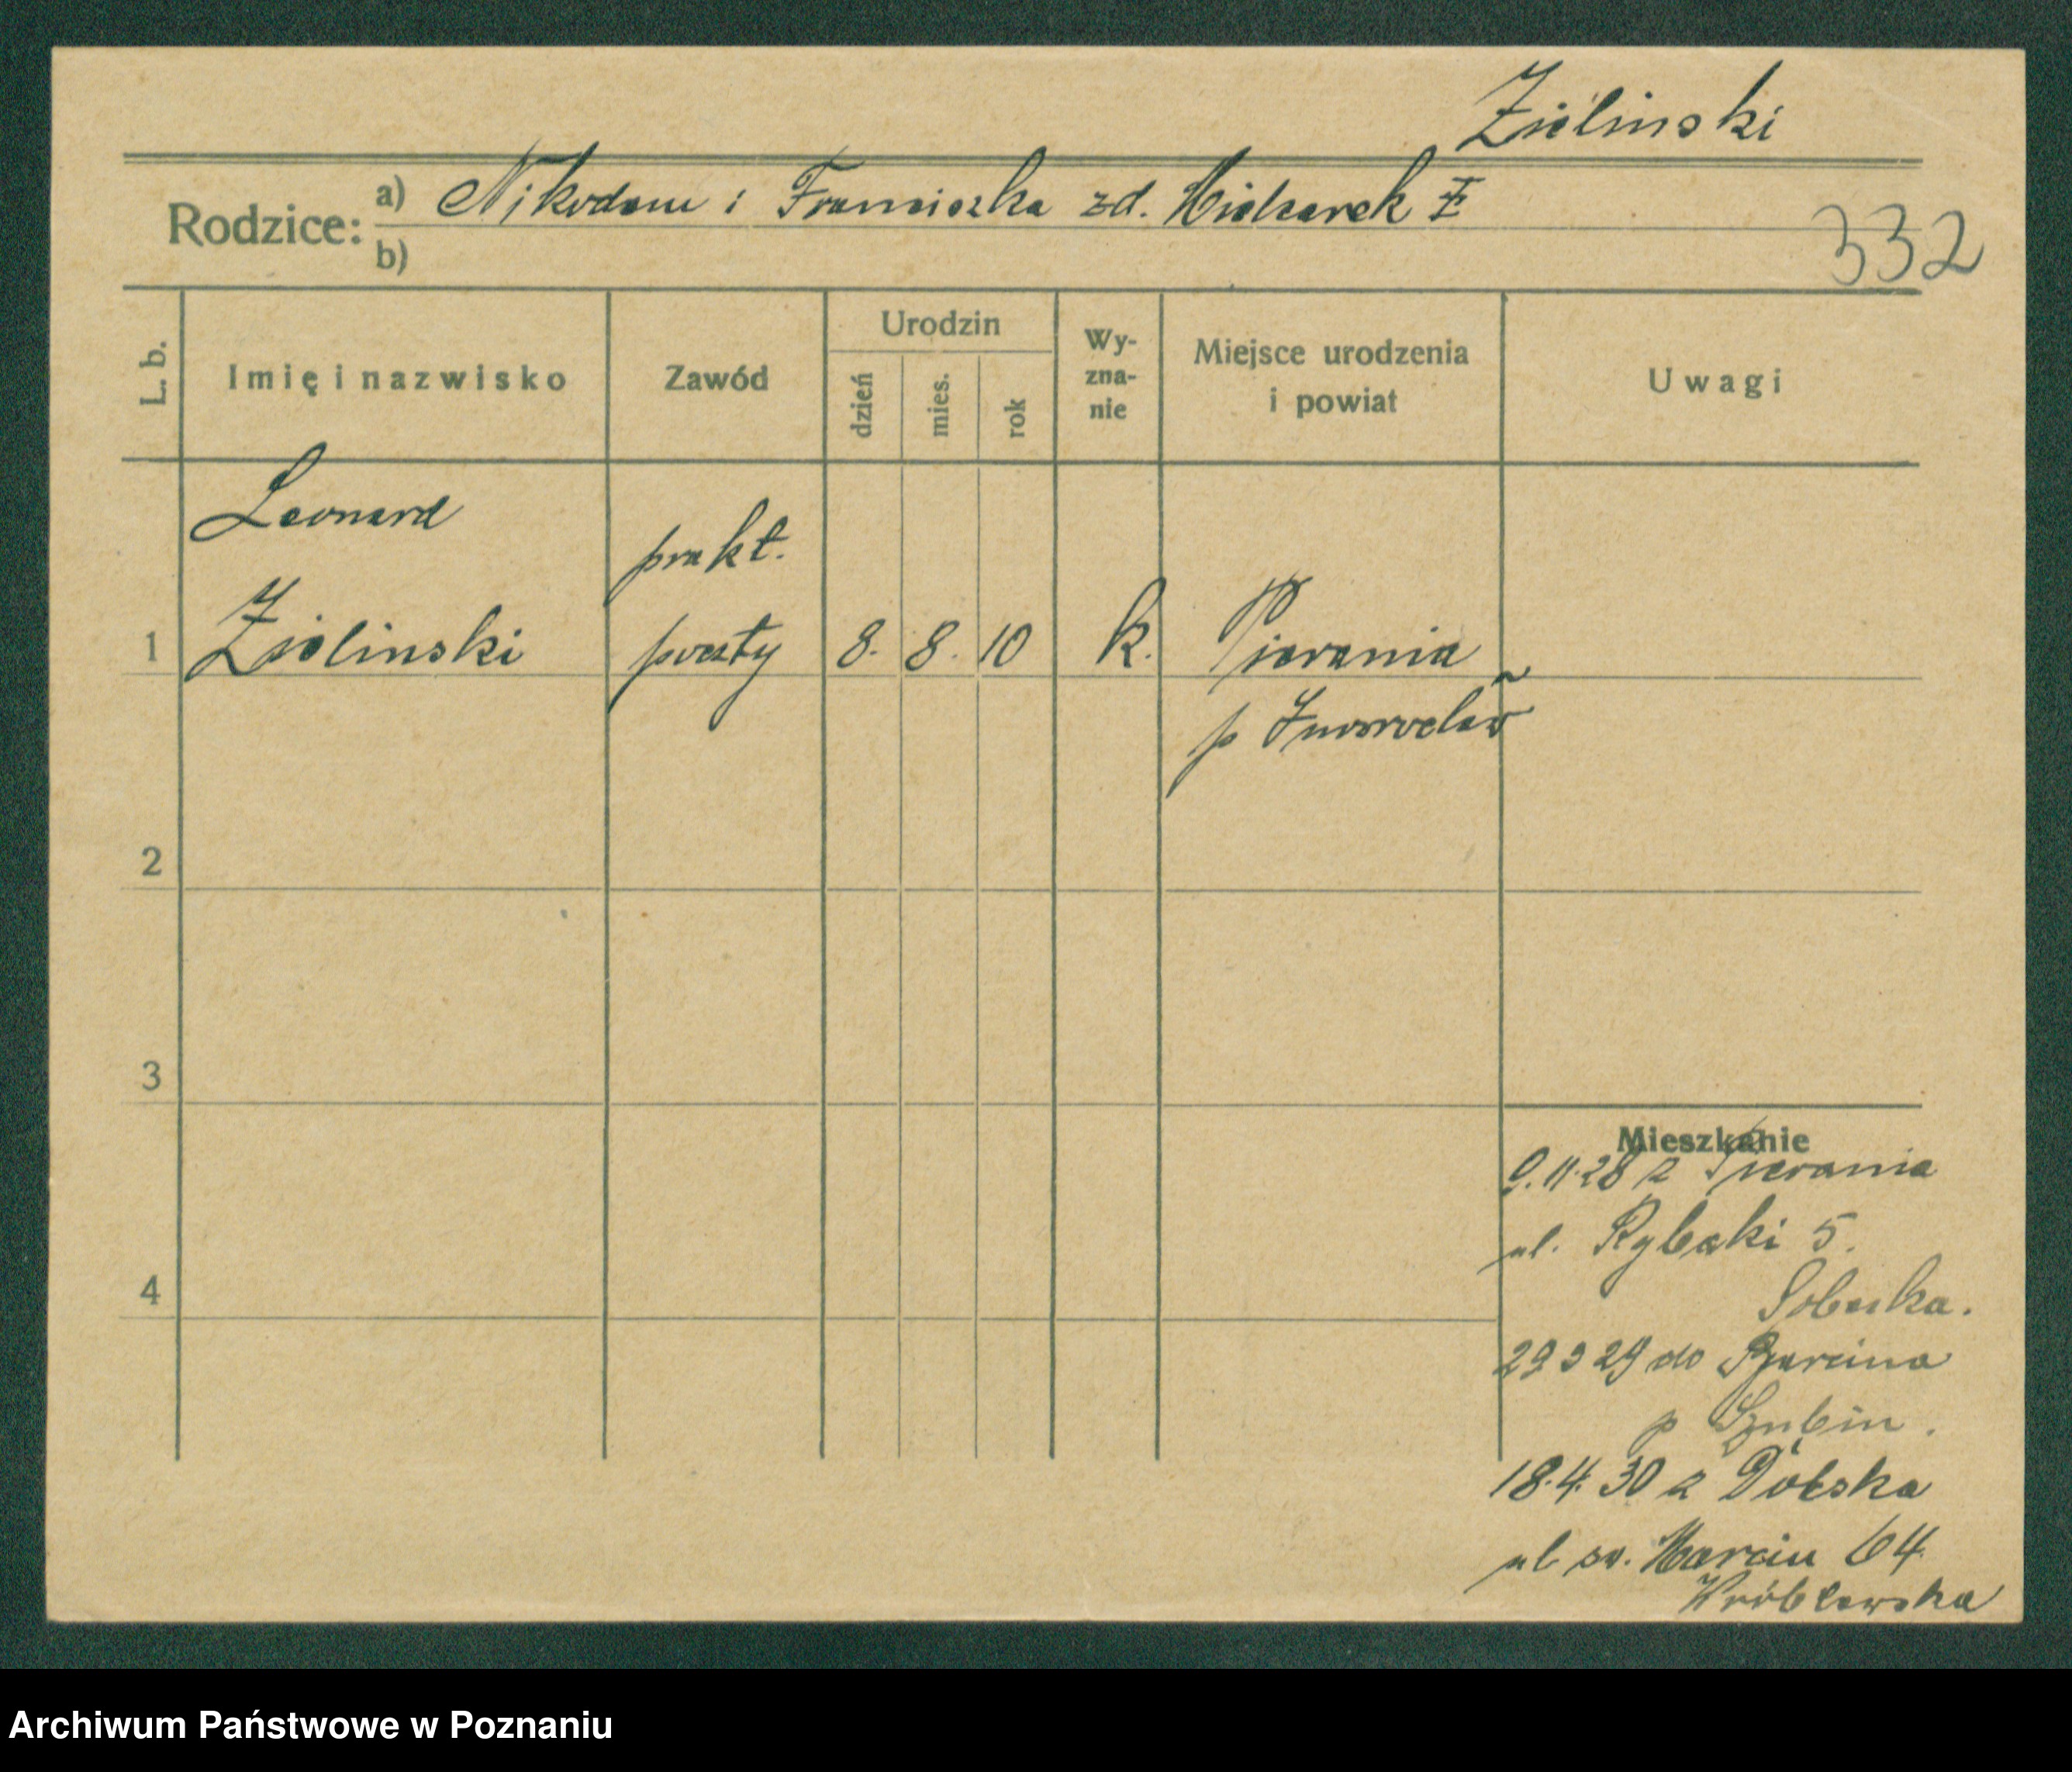 Zielinski
Rodzice: a) Nikodem i Franciszka zd. Mielcarek Z
b)
332
L. b.
Imię i nazwisko
Zawód
Urodzin
dzień
mies.
rok
Wy-
zna-
nie
Miejsce urodzenia
i powiat
Uwagi
Leonard
prakt.
1 Zielinski poczty 8. 8. 10 k. Pierania
p Inowrocław
2
3
4
Mieszkanie
9.11.28 z Pierania
ul. Rybaki 5.
29 3 29 do Barcina
p Szubin.
18.4.30 z
ul św. Marcin 64
Wróblewska
Archiwum Państwowe w Poznaniu